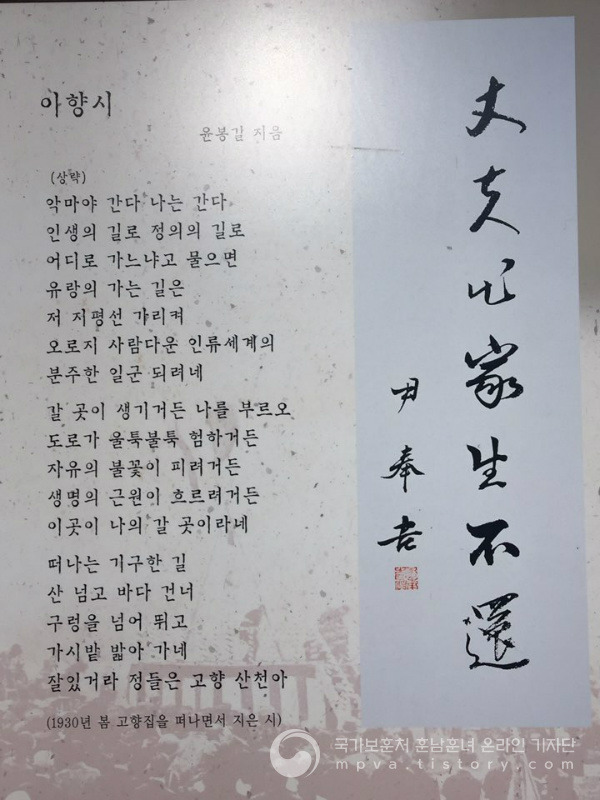 아향시
윤봉길 지음
(상략)
악마야 간다 나는 간다
인생의 길로 정의의 길로
어디로 가느냐고 물으면
유랑의 가는 길은
저 지평선 가리켜
오로지 사람다운 인류세계의
분주한 일군 되려네
갈 곳이 생기거든 나를 부르오
도로가 울툭불툭 험하거든
자유의 불꽃이 피려거든
생명의 근원이 흐르려거든
이곳이 나의 갈 곳이라네
떠나는 기구한 길
산 넘고 바다 건너
구렁을 넘어 뛰고
가시밭 밟아 가네
잘있거라 정들은 고향 산천아
(1930년 봄 고향집을 떠나면서 지은 시)
丈夫出家生不還
尹奉吉
국가보훈처 훈남훈녀 온라인 기자단
mpva.tistory.com